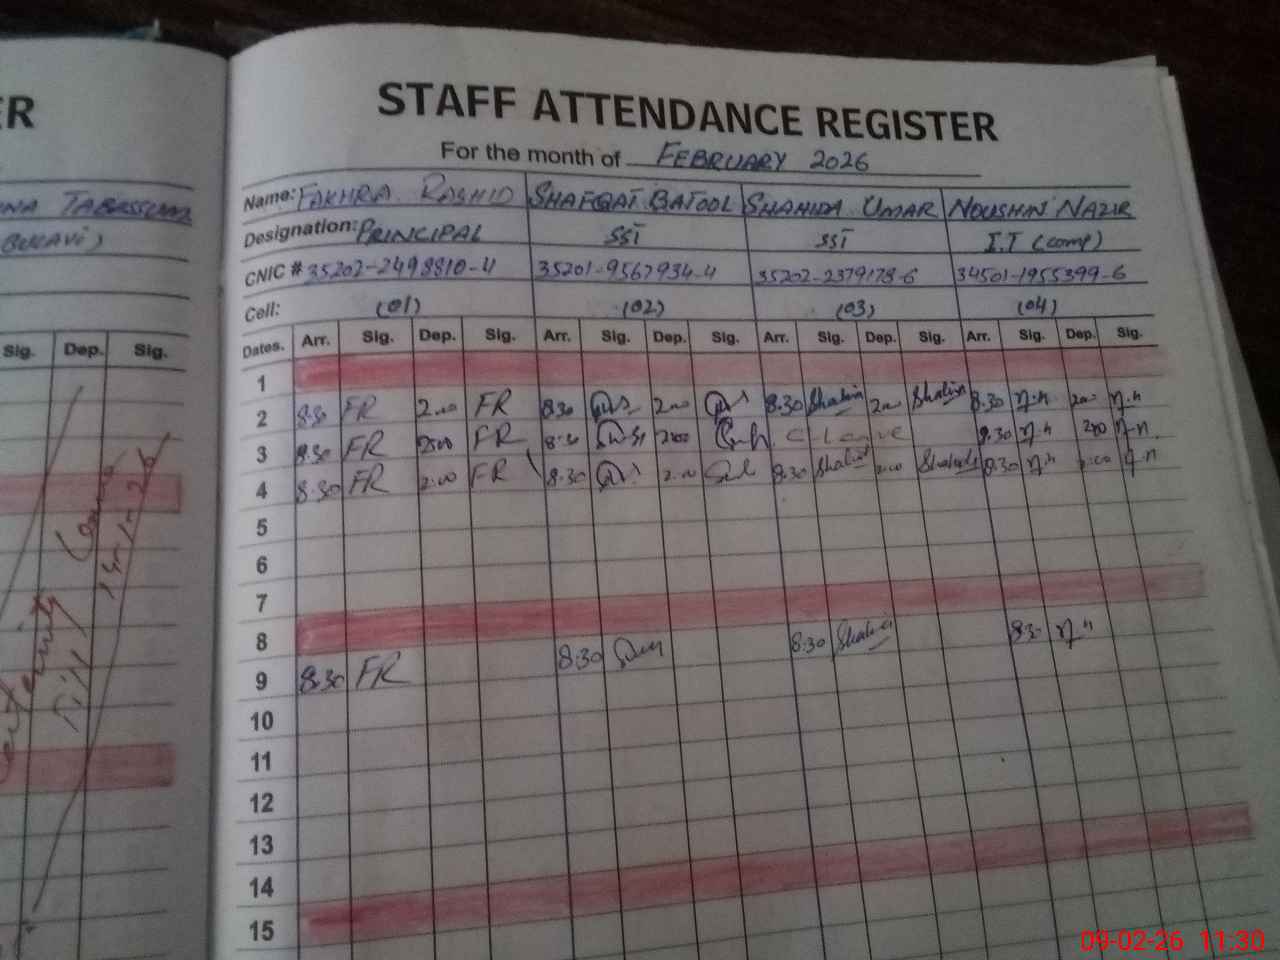 ER
STAFF ATTENDANCE REGISTER
For the month of FEBRUARY 2026
Name: FAKHRA RASHID SHAFQAT BATOOL SHAHIDA UMAR NOUSHIN NAZIR
TABASSUM
Designation: PRINCIPAL SST SST I.T (comp)
CNIC # 35202-2498810-4 35201-9567934-4 35202-2379178-6 34501-1955399-6
Cell: (01) (02) (03) (04)
Sig. Dep. Sig.
Dates. Arr. Sig. Dep. Sig. Arr. Sig. Dep. Sig. Arr. Sig. Dep. Sig. Arr. Sig. Dep. Sig.
1
2 8.30 FR 2.00 FR 8.30 2.00 8.30 2.00 8.30 n.n 2.00 n.n
3 8.30 FR 2.00 FR 8.30 2.00 C Leave 8.30 n.n 2.00 n.n
4 8.30 FR 2.00 FR 8.30 2.00 8.30 2.00 8.30 n.n 2.00 n.n
5
6
7
8
9 8.30 FR 8.30 8.30 8.30 n.n
10
11
12
13
14
15
09-02-26 11:30